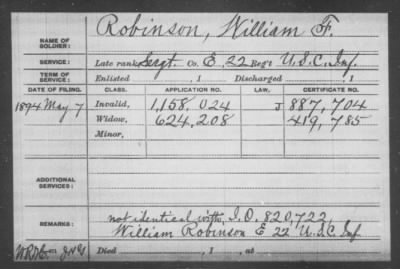 NAME OF SOLDIER: Robinson, William F.
SERVICE: Late rank Sergt. Co. E, 22 Reg't U.S.C. Inf.
TERM OF SERVICE: Enlisted , 1 Discharged , 1
DATE OF FILING. CLASS. APPLICATION NO. LAW. CERTIFICATE NO.
1894 May 7 Invalid, 1,158,024 J 887,704
Widow, 624,208 419,785
Minor,
ADDITIONAL SERVICES:
REMARKS: not identical with I.O. 820,722,
William Robinson E 22 U.S.C. Inf
Died , 1 , at